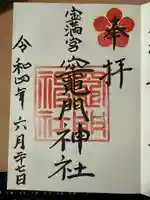 奉拝
宝満宮
竈門神社
令和四年六月廿七日